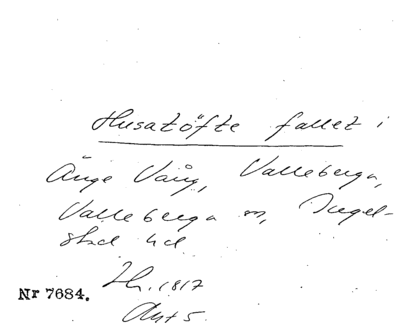 Husatöfte fallet i
Änge Vång, Valleberga,
Valleberga sn, Ingel-
stad hd
Hr. 1817
Nr 7684.
Akt 5.